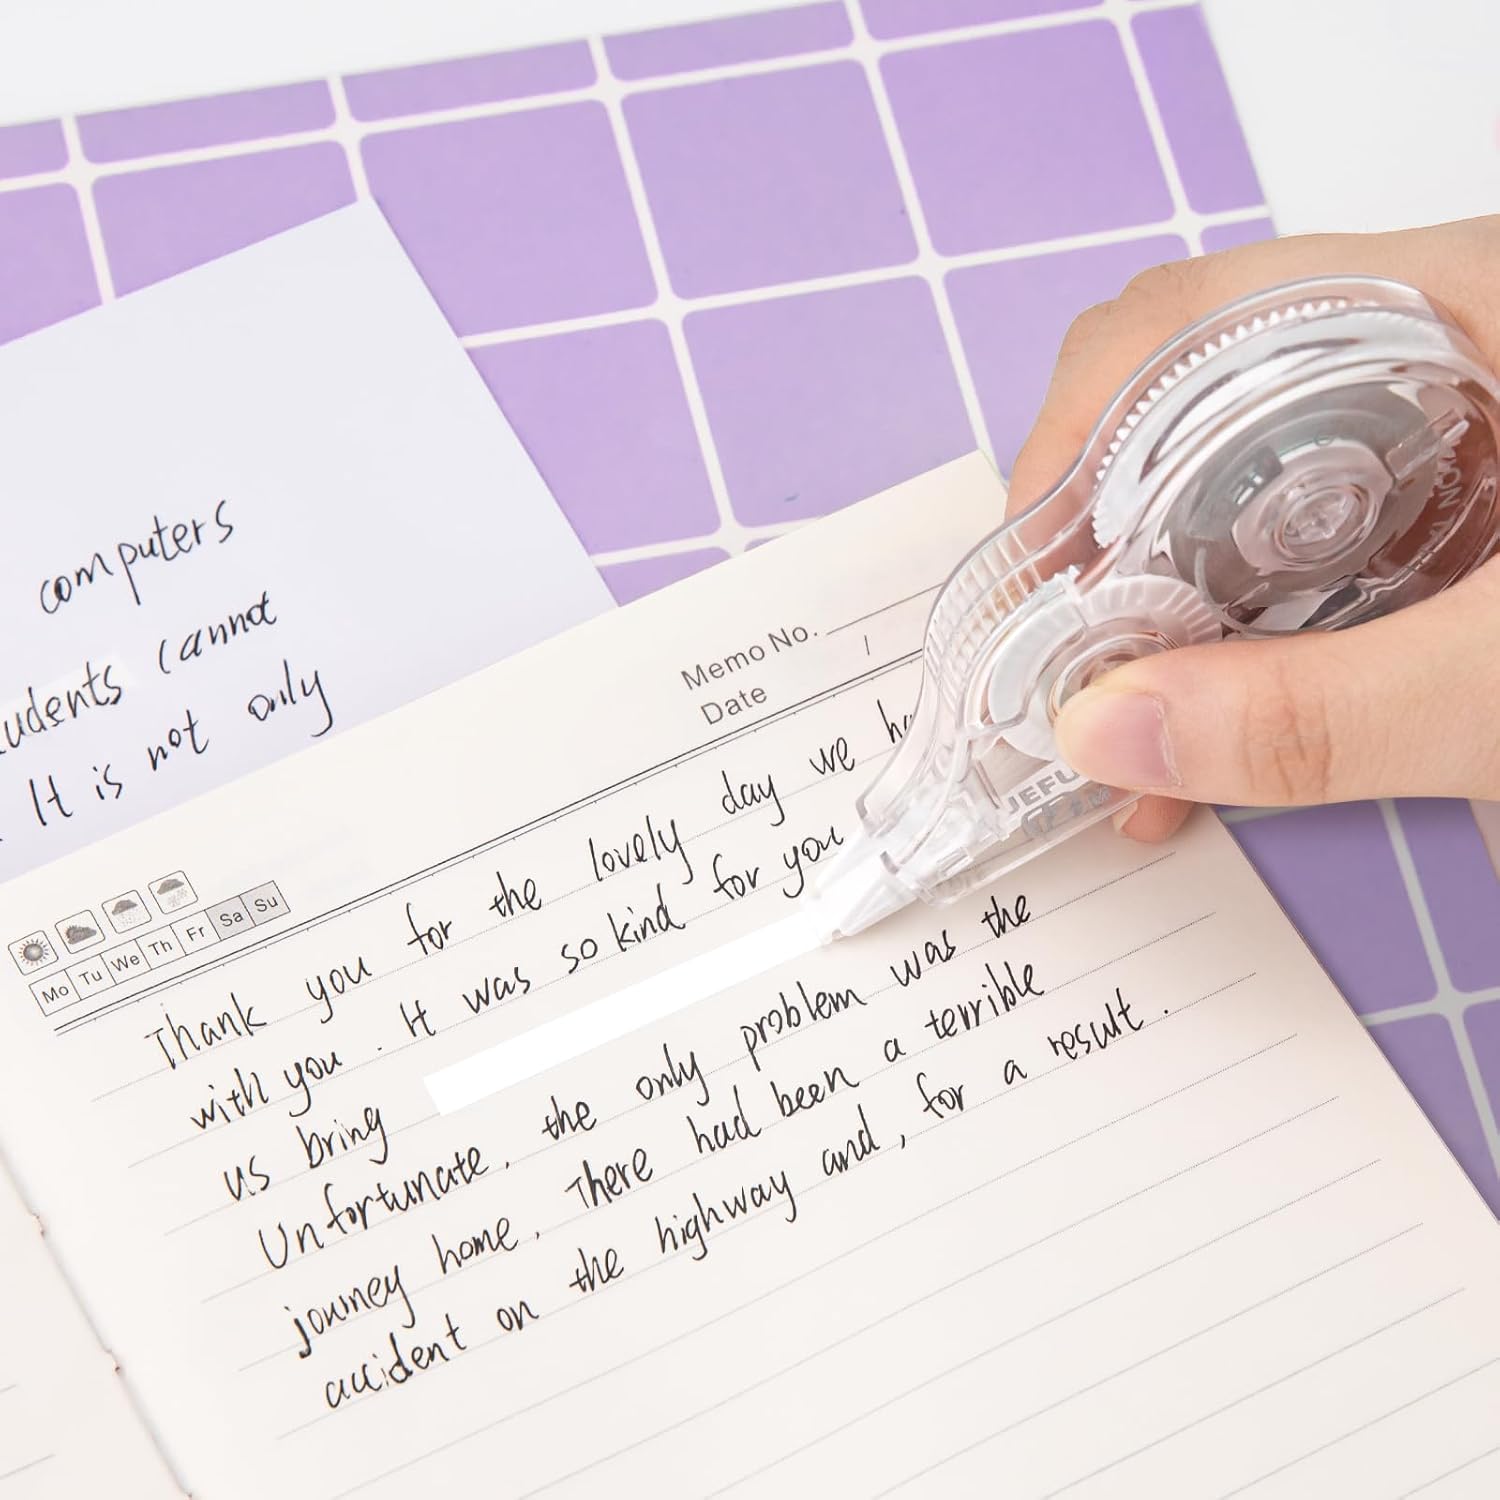 computers
cannot
It is not only
Memo No.
Date /
Mo Tu We Th Fr Sa Su
Thank you for the lovely day we
with you. It was so kind for you
us bring
Unfortunate, the only problem was the
journey home. There had been a terrible
accident on the highway and, for a result.